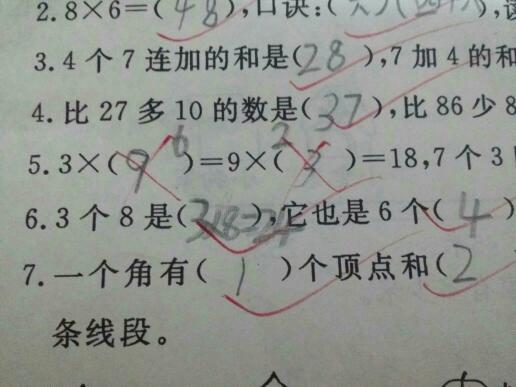 2.8×6=(48),口诀:(六八四十八),读
3.4个7连加的和是(28),7加4的和
4.比27多10的数是(37),比86少8
5.3×(9 6)=9×(3 2)=18,7个3
6.3个8是(3×8=24),它也是6个(4)
7.一个角有(1)个顶点和(2
条线段。